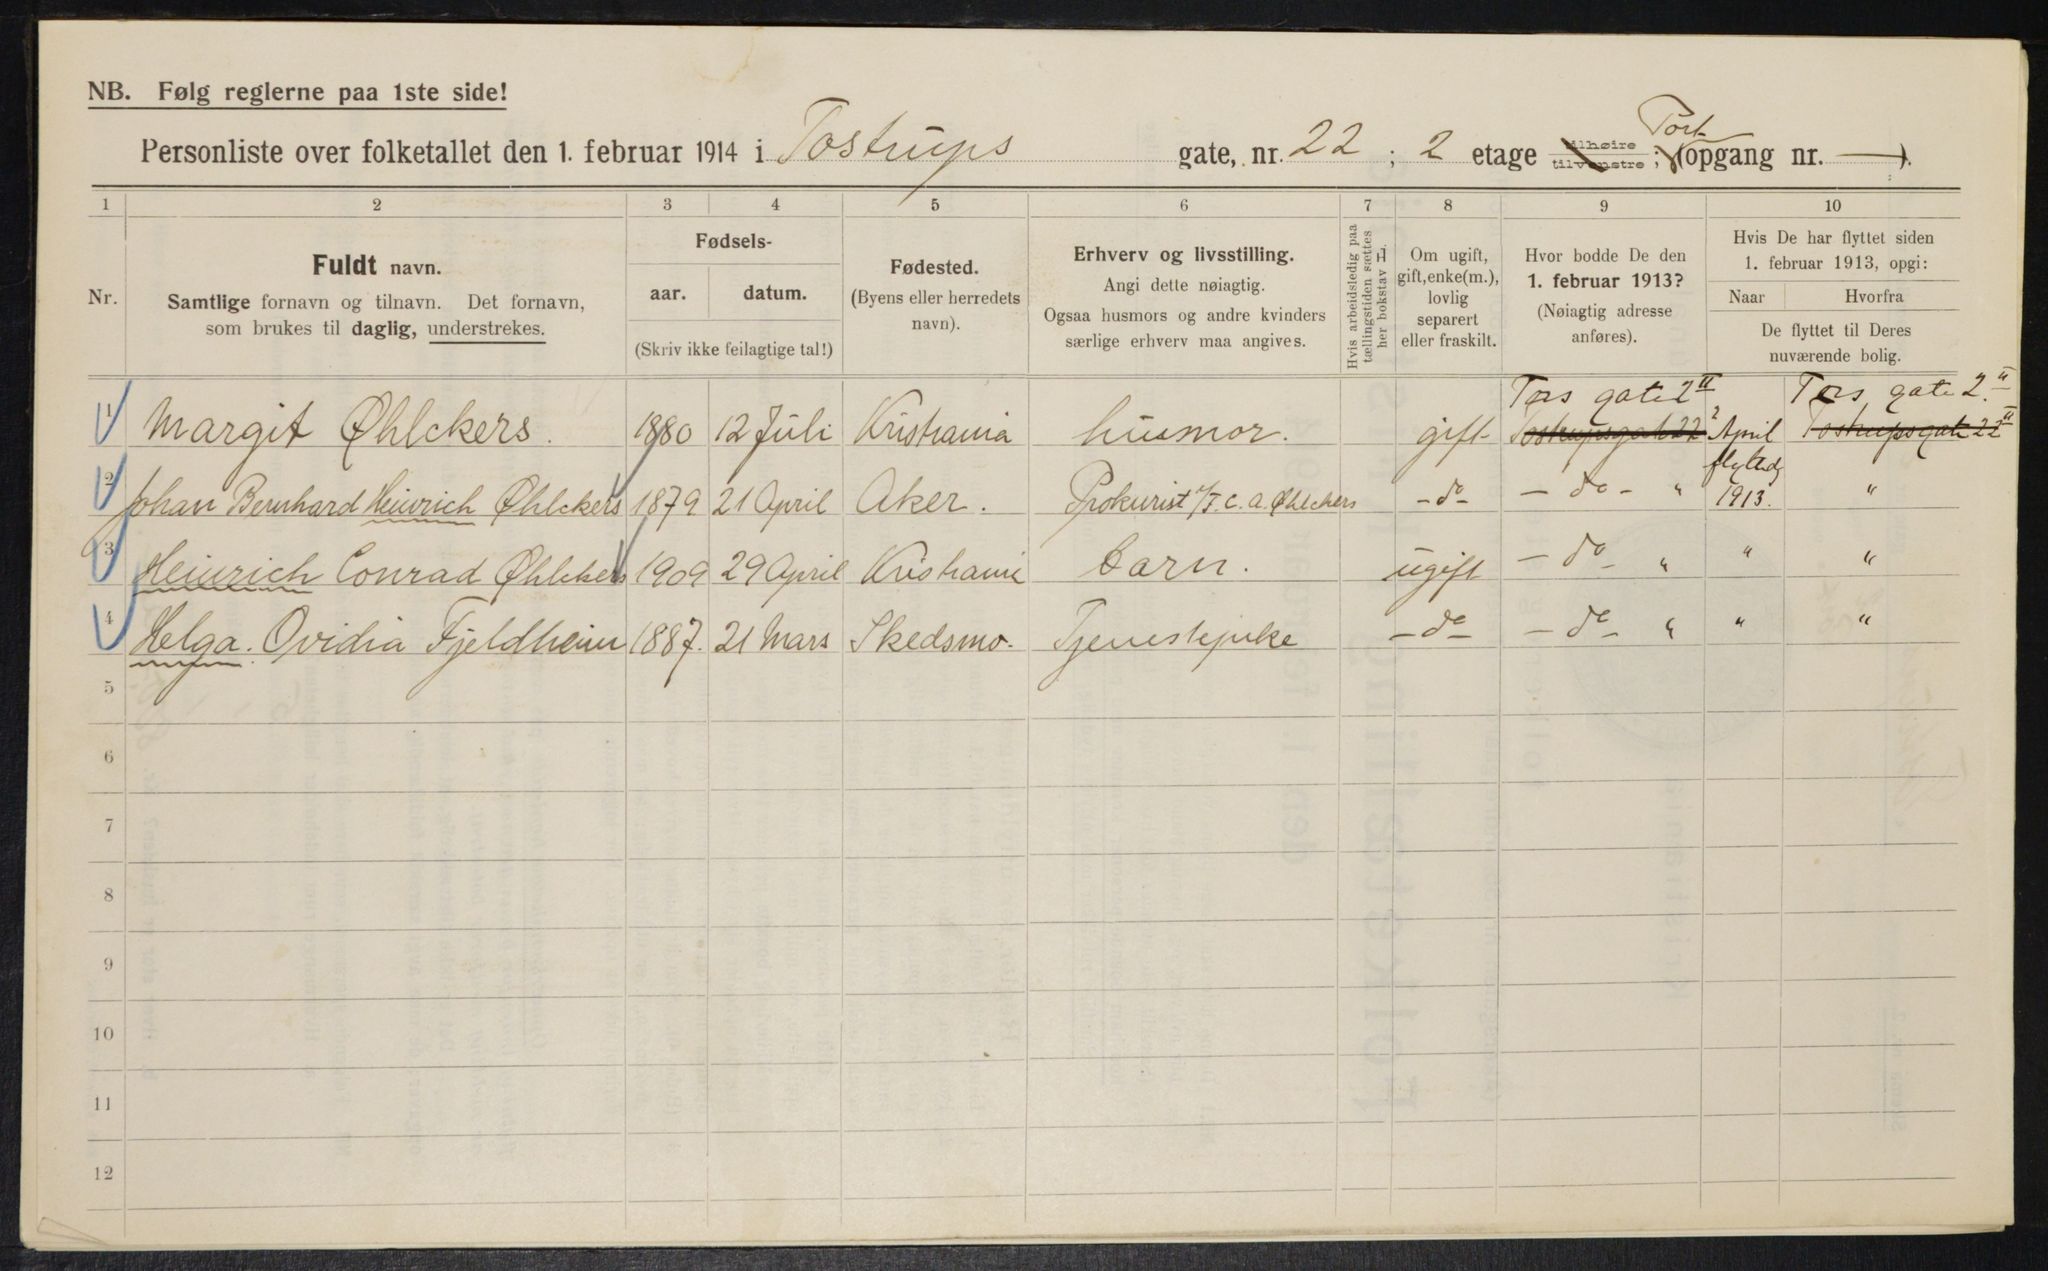 NB. Følg reglerne paa 1ste side!
Personliste over folketallet den 1. februar 1914 i Tostrups gate, nr. 22 ; 2 etage tilhøire tilvenstre ; Port (opgang nr. — ).
1 2 3 4 5 6 7 8 9 10
Nr.
Fuldt navn.
Samtlige fornavn og tilnavn. Det fornavn,
som brukes til daglig, understrekes.
Fødsels-
aar. datum.
(Skriv ikke feilagtige tal!)
Fødested.
(Byens eller herredets
navn).
Erhverv og livsstilling.
Angi dette nøiagtig.
Ogsaa husmors og andre kvinders
særlige erhverv maa angives.
Hvis arbeidsledig paa
tællingstiden sættes
her bokstav L.
Om ugift,
gift, enke(m.),
lovlig
separert
eller fraskilt.
Hvor bodde De den
1. februar 1913?
(Nøiagtig adresse
anføres).
Hvis De har flyttet siden
1. februar 1913, opgi:
Naar Hvorfra
De flyttet til Deres
nuværende bolig.
Tors gate 2 II Tors gate 2 II
1 Margit Øhlckers. 1880 12 Juli Kristiania husmor. gift Tostrupsgate 22 2 April Tostrupsgate 22 II
flyttedes
2 Johan Bernhard Heinrich Øhlckers 1879 21 April Aker. Prokurist i/F. C. A. Øhlckers – do – – do – " 1913. "
3 Heinrich Conrad Øhlckers 1909 29 April Kristiania barn. ugift – do – " " "
4 Helga. Ovidia Fjeldheim 1887. 21 Mars Skedsmo. Tjenestepike – do – – do – " " "
5
6
7
8
9
10
11
12